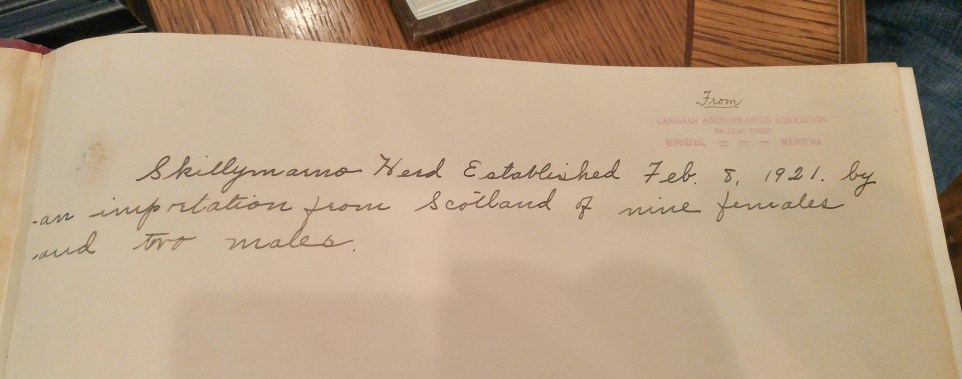 From
CANADIAN ABERDEEN-ANGUS ASSOCIATION
STREET
WINNIPEG, — — — MANITOBA
Skillymarno Herd Established Feb. 8, 1921. by
an importation from Scotland of nine females
and two males.